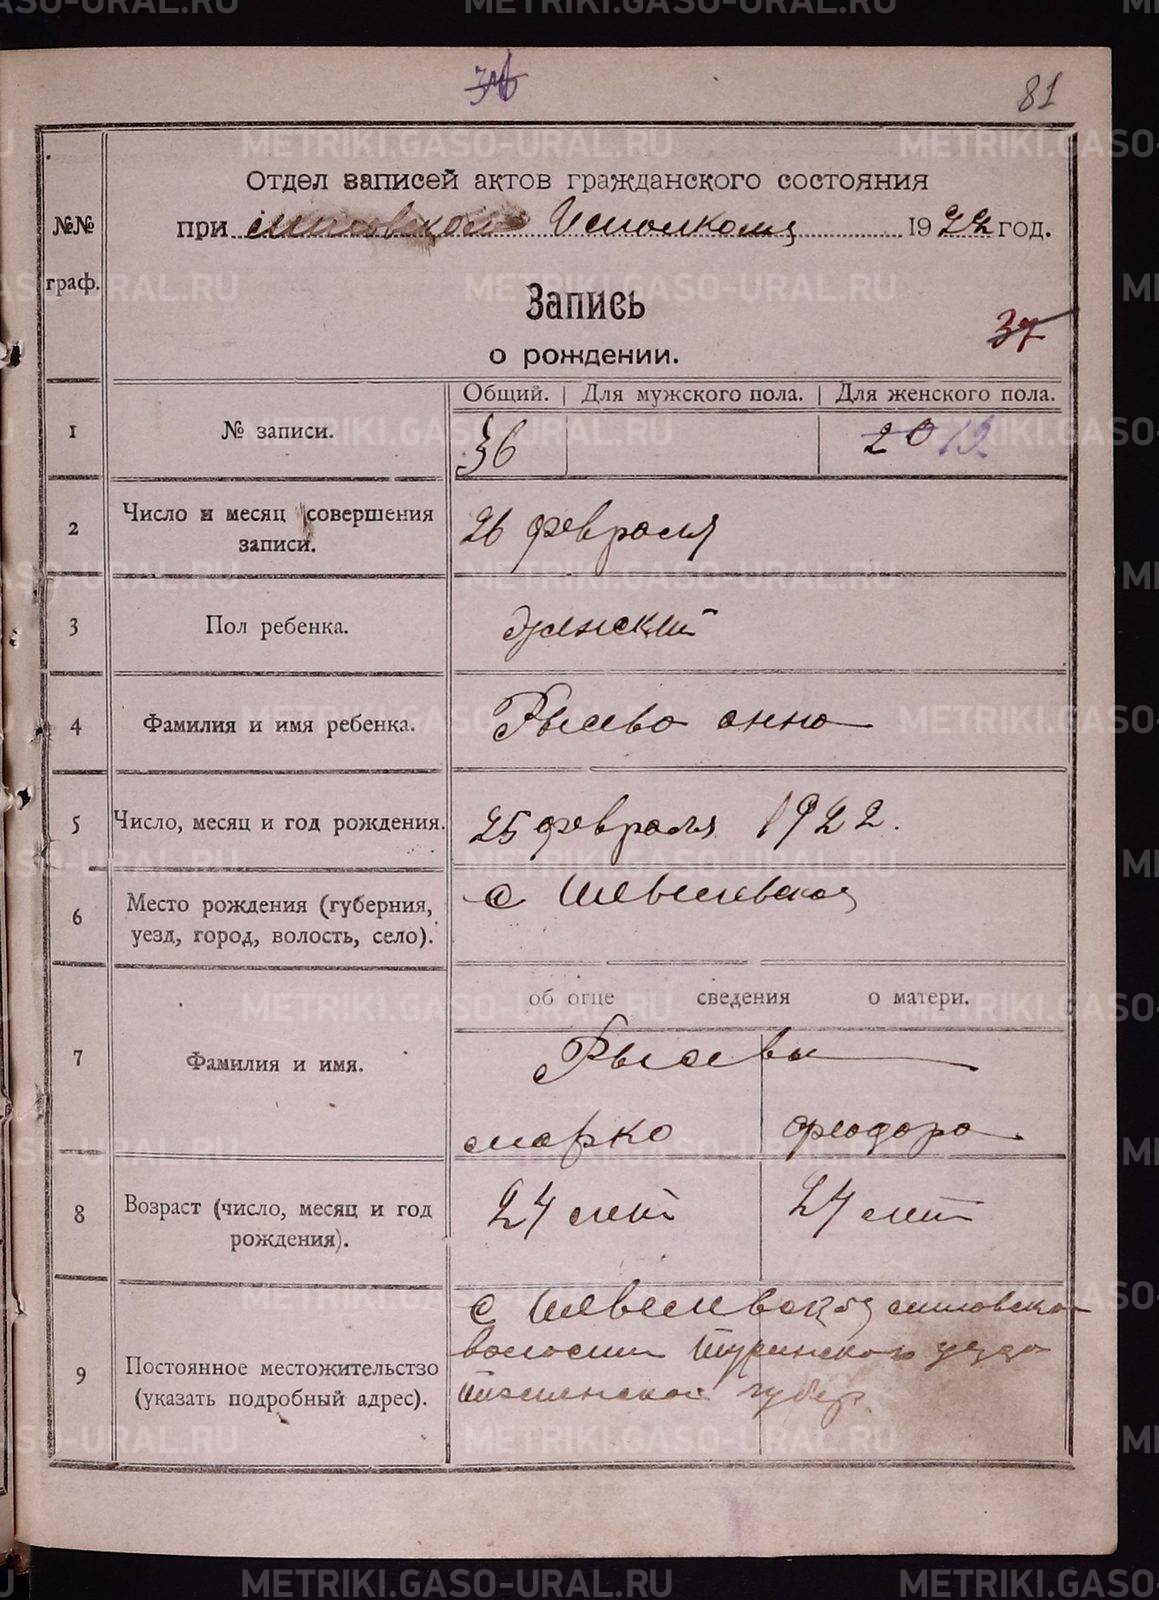 81
Отдел записей актов гражданского состояния
при Исполкома 1922 год.
№№
граф.
Запись
о рождении.
37
Общий. Для мужского пола. Для женского пола.
1 № записи. 36 20 19
2 Число и месяц совершения записи. 26 февраля
3 Пол ребенка. женский
4 Фамилия и имя ребенка. анна
5 Число, месяц и год рождения. 25 февраля 1922.
6 Место рождения (губерния, уезд, город, волость, село). с
об отце сведения о матери.
7 Фамилия и имя.
марко феодора
8 Возраст (число, месяц и год рождения). 24 лет 24 лет
9 Постоянное местожительство (указать подробный адрес). с
волости Туринского уезда
губер.
METRIKI.GASO-URAL.RU